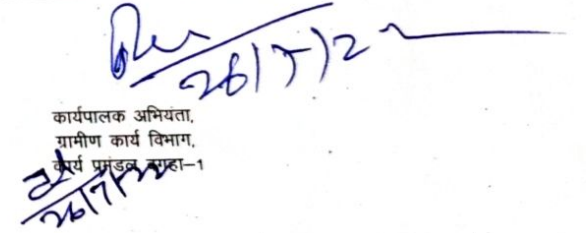 26/7/22
कार्यपालक अभियंता,
ग्रामीण कार्य विभाग,
कार्य प्रमंडल बगहा–1
26/7/22